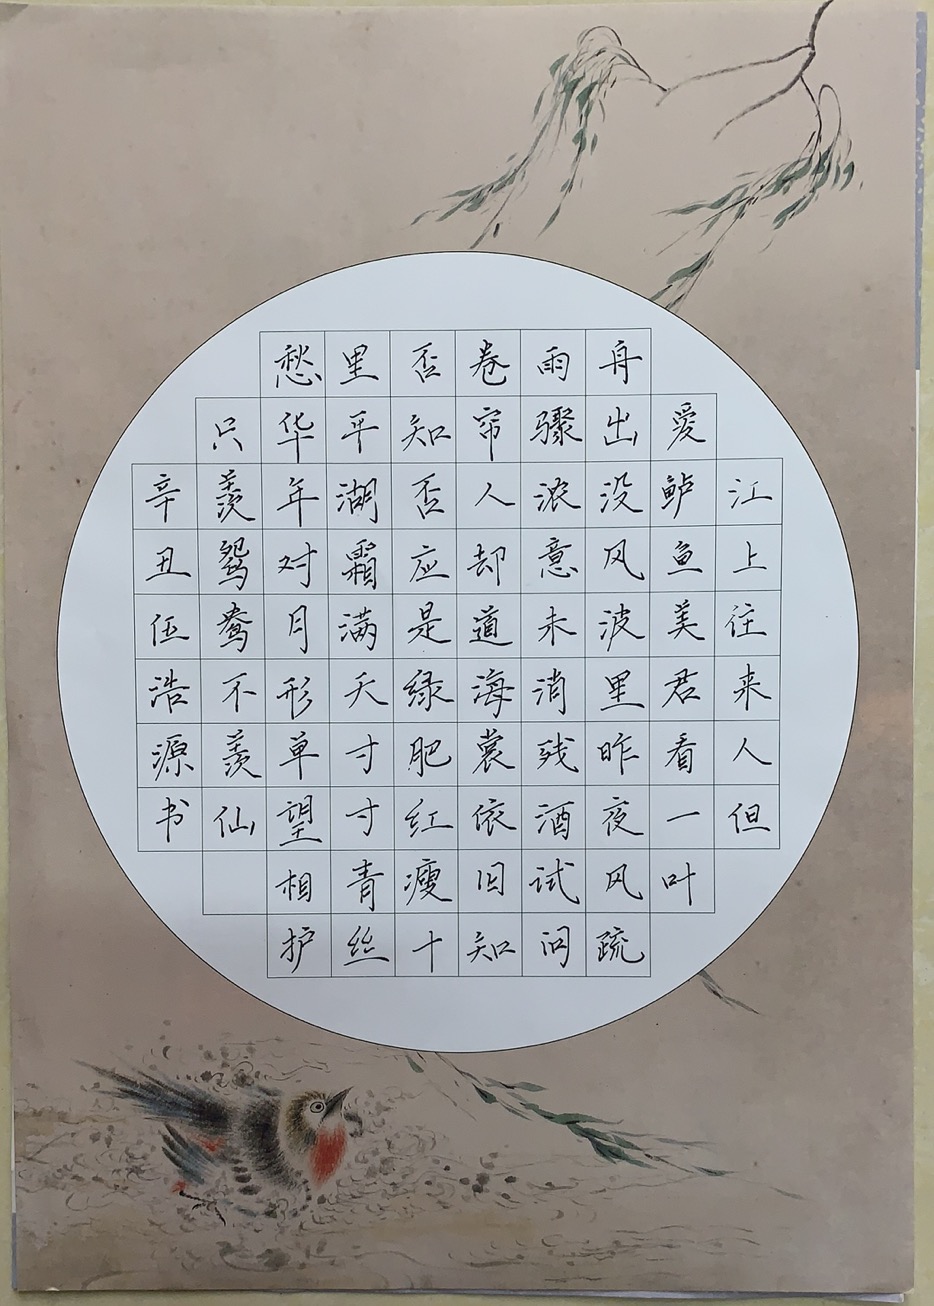 江上往来人但
爱鲈鱼美君看一叶
舟出没风波里昨夜风疏
雨骤浓意未消残酒试问
卷帘人却道海裳依旧知
否知否应是绿肥红瘦十
里平湖霜满天寸寸青丝
愁华年对月形单望相护
只羡鸳鸯不羡仙
辛丑伍浩源书